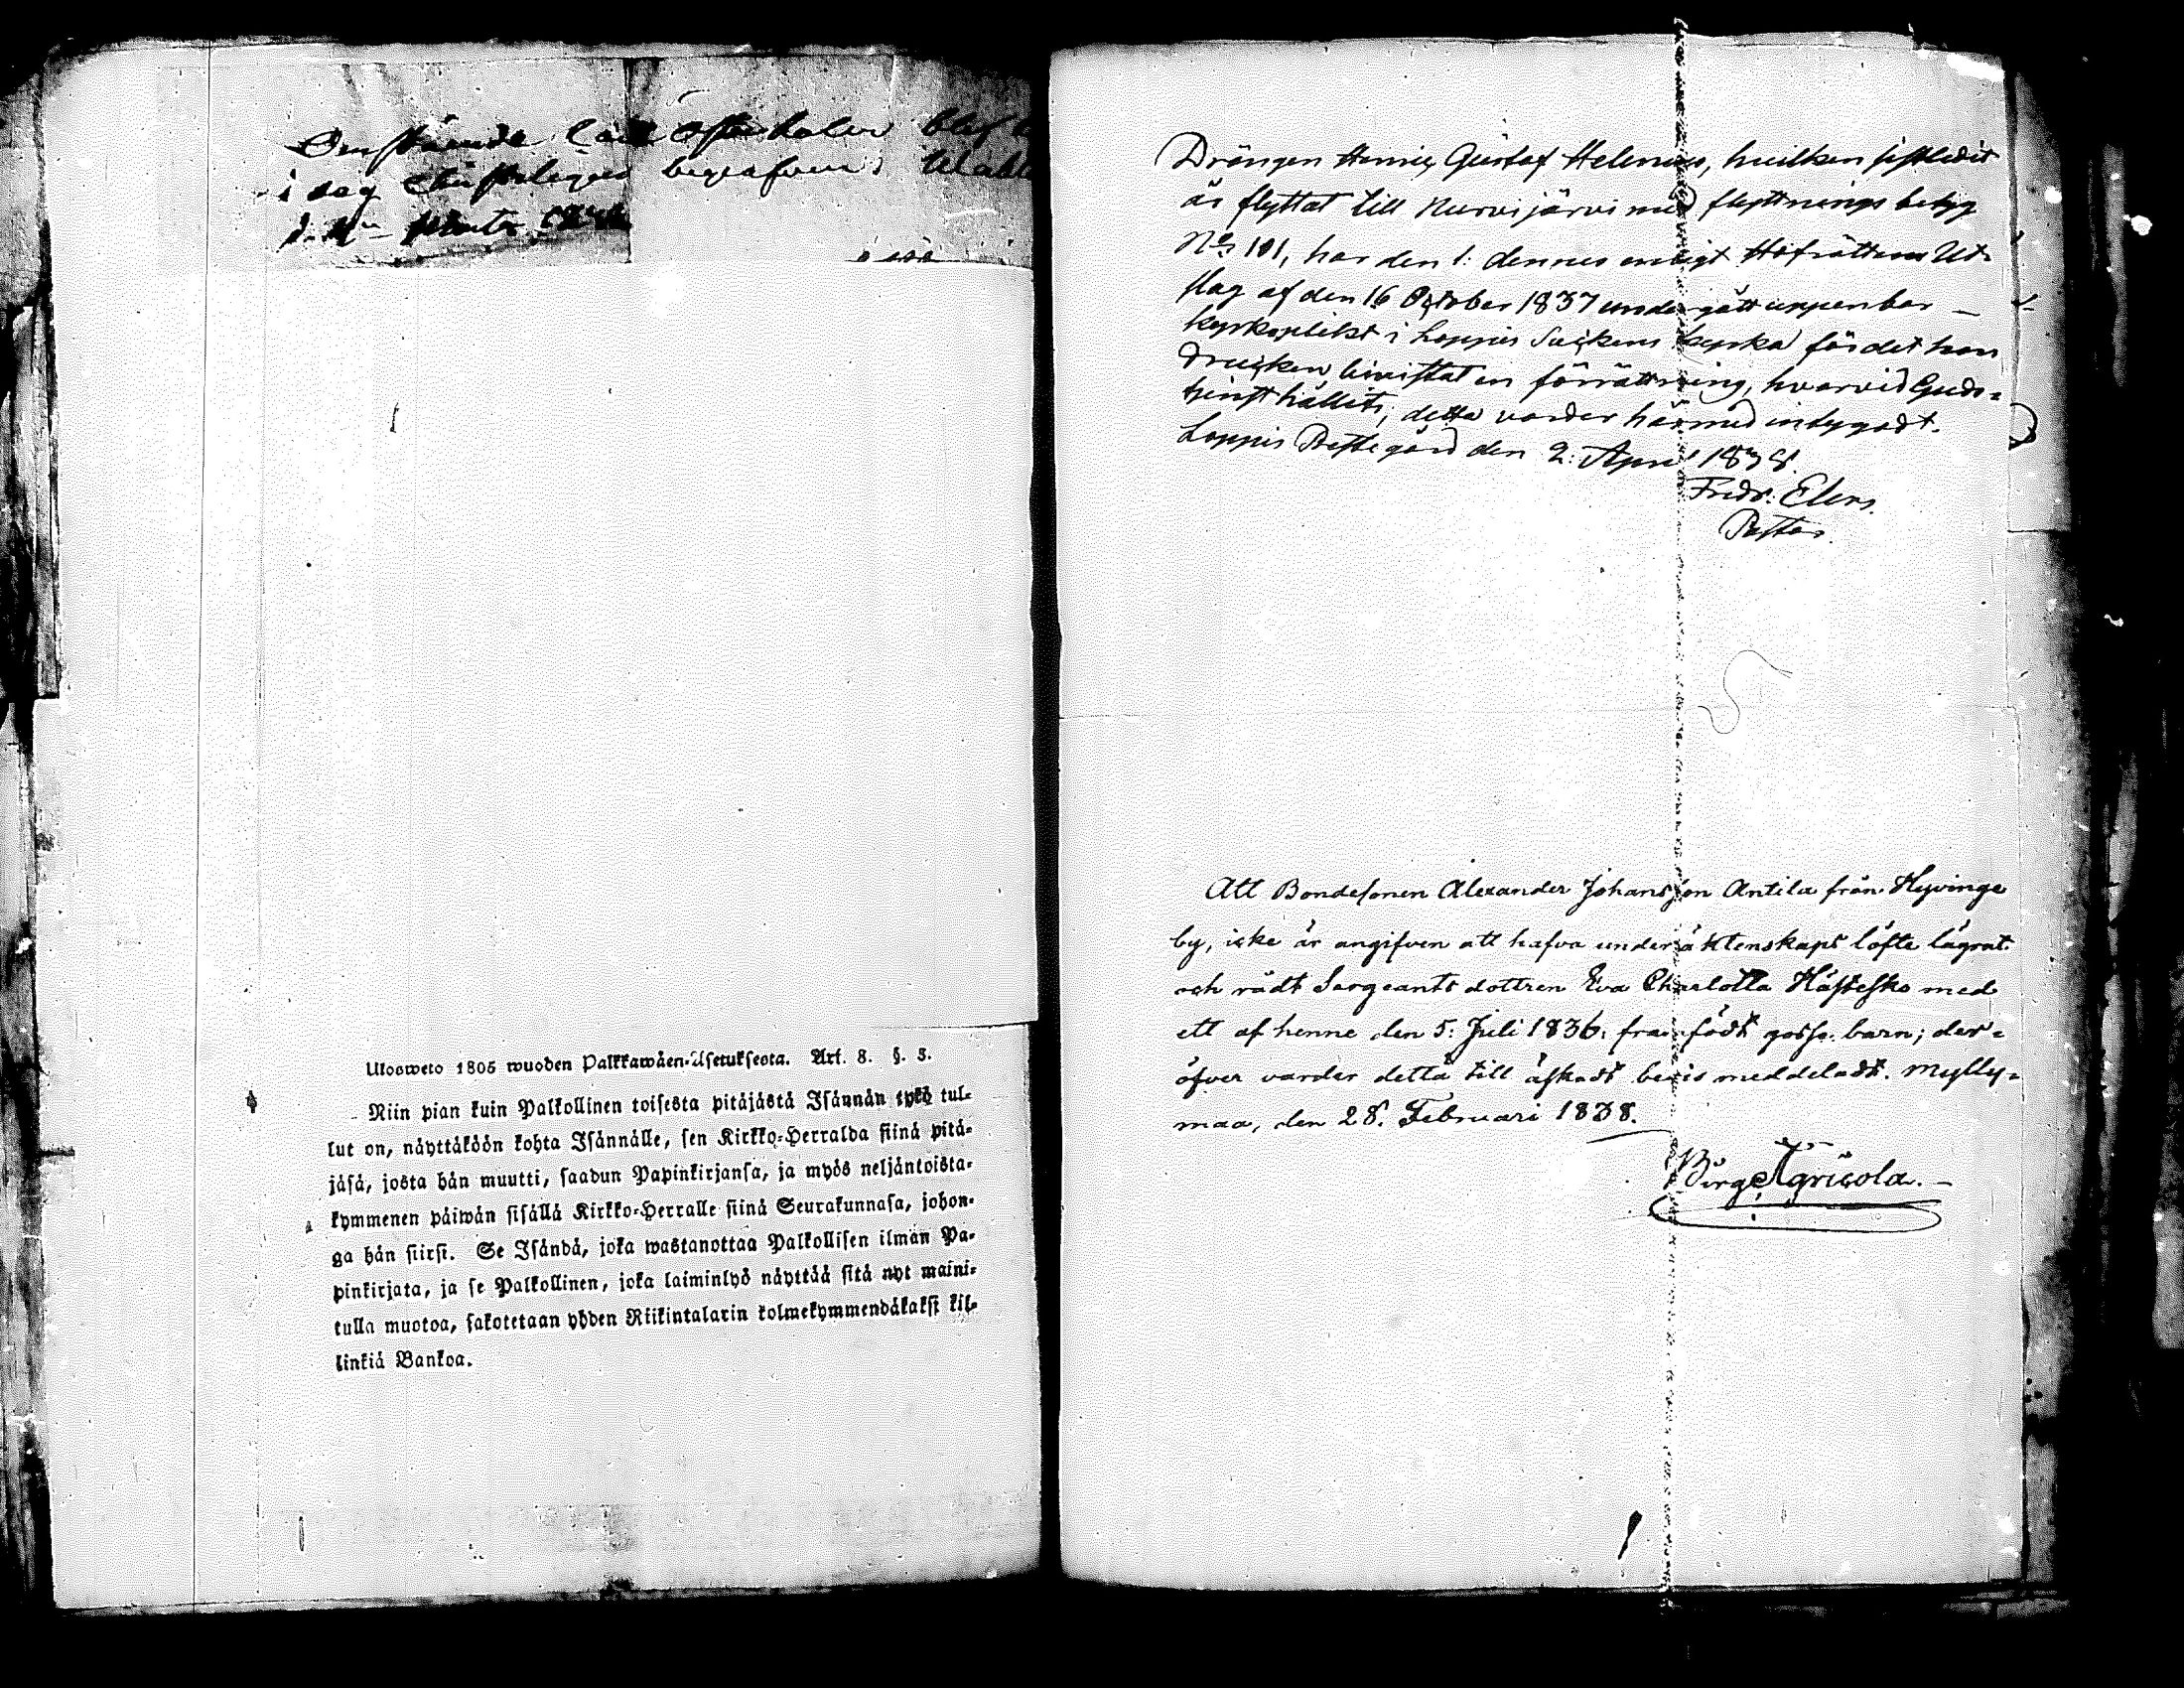 i dag Christeligen begrafven i
Ulosweto 1805 wuoden Palkkawäen-Asetuksesta. Art. 8. §. 3.
Niin pian kuin Palkollinen toisesta pitäjästä Isännän työ tul-
lut on, näyttäköön kohta Isännälle, sen Kirkko-Herralda siinä pitä-
jäsä, josta hän muutti, saadun Papinkirjansa, ja myös neljäntoista-
kymmenen päiwän sisällä Kirkko-Herralle siinä Seurakunnasa, johon-
ga hän siirsi. Se Isändä, joka wastanottaa Palkollisen ilman Pa-
pinkirjata, ja se Palkollinen, joka laiminlyö näyttää sitä nyt maini-
tulla muotoa, sakotetaan yhden Riikintalarin kolmekymmendäkaksi kil-
linkiä Bankoa.
Drängen Henric Gustaf Helenius, hvilken sistledit
år flyttat till Nurmijärvi med flyttnings betyg
No 101, har den 1: dennes enligt Hofrättens Ut-
slag af den 16 October 1837 undergått uppenbar
kyrkoplikt i Loppis Sockens kyrka för det han
drucken bivistat en förrättning, hvarvid Guds-
tjenst hållits; detta varder härmed intygadt.
Loppis Prestegård den 2: April 1838.
Fredr: Elers.
Pastor.
Att Bondesonen Alexander Johansson Antila från Hyvinge
by, icke är angifven att hafva under äktenskaps löfte lägrat
och rådt Sergeants dottren Eva Charlotta Hästesko med
ett af henne den 5: Juli 1836. framfödt gosse barn; der-
öfver varder detta till äskadt bevis meddeladt. Mylly-
maa, den 28. Februari 1838.
Birg. Agricola.